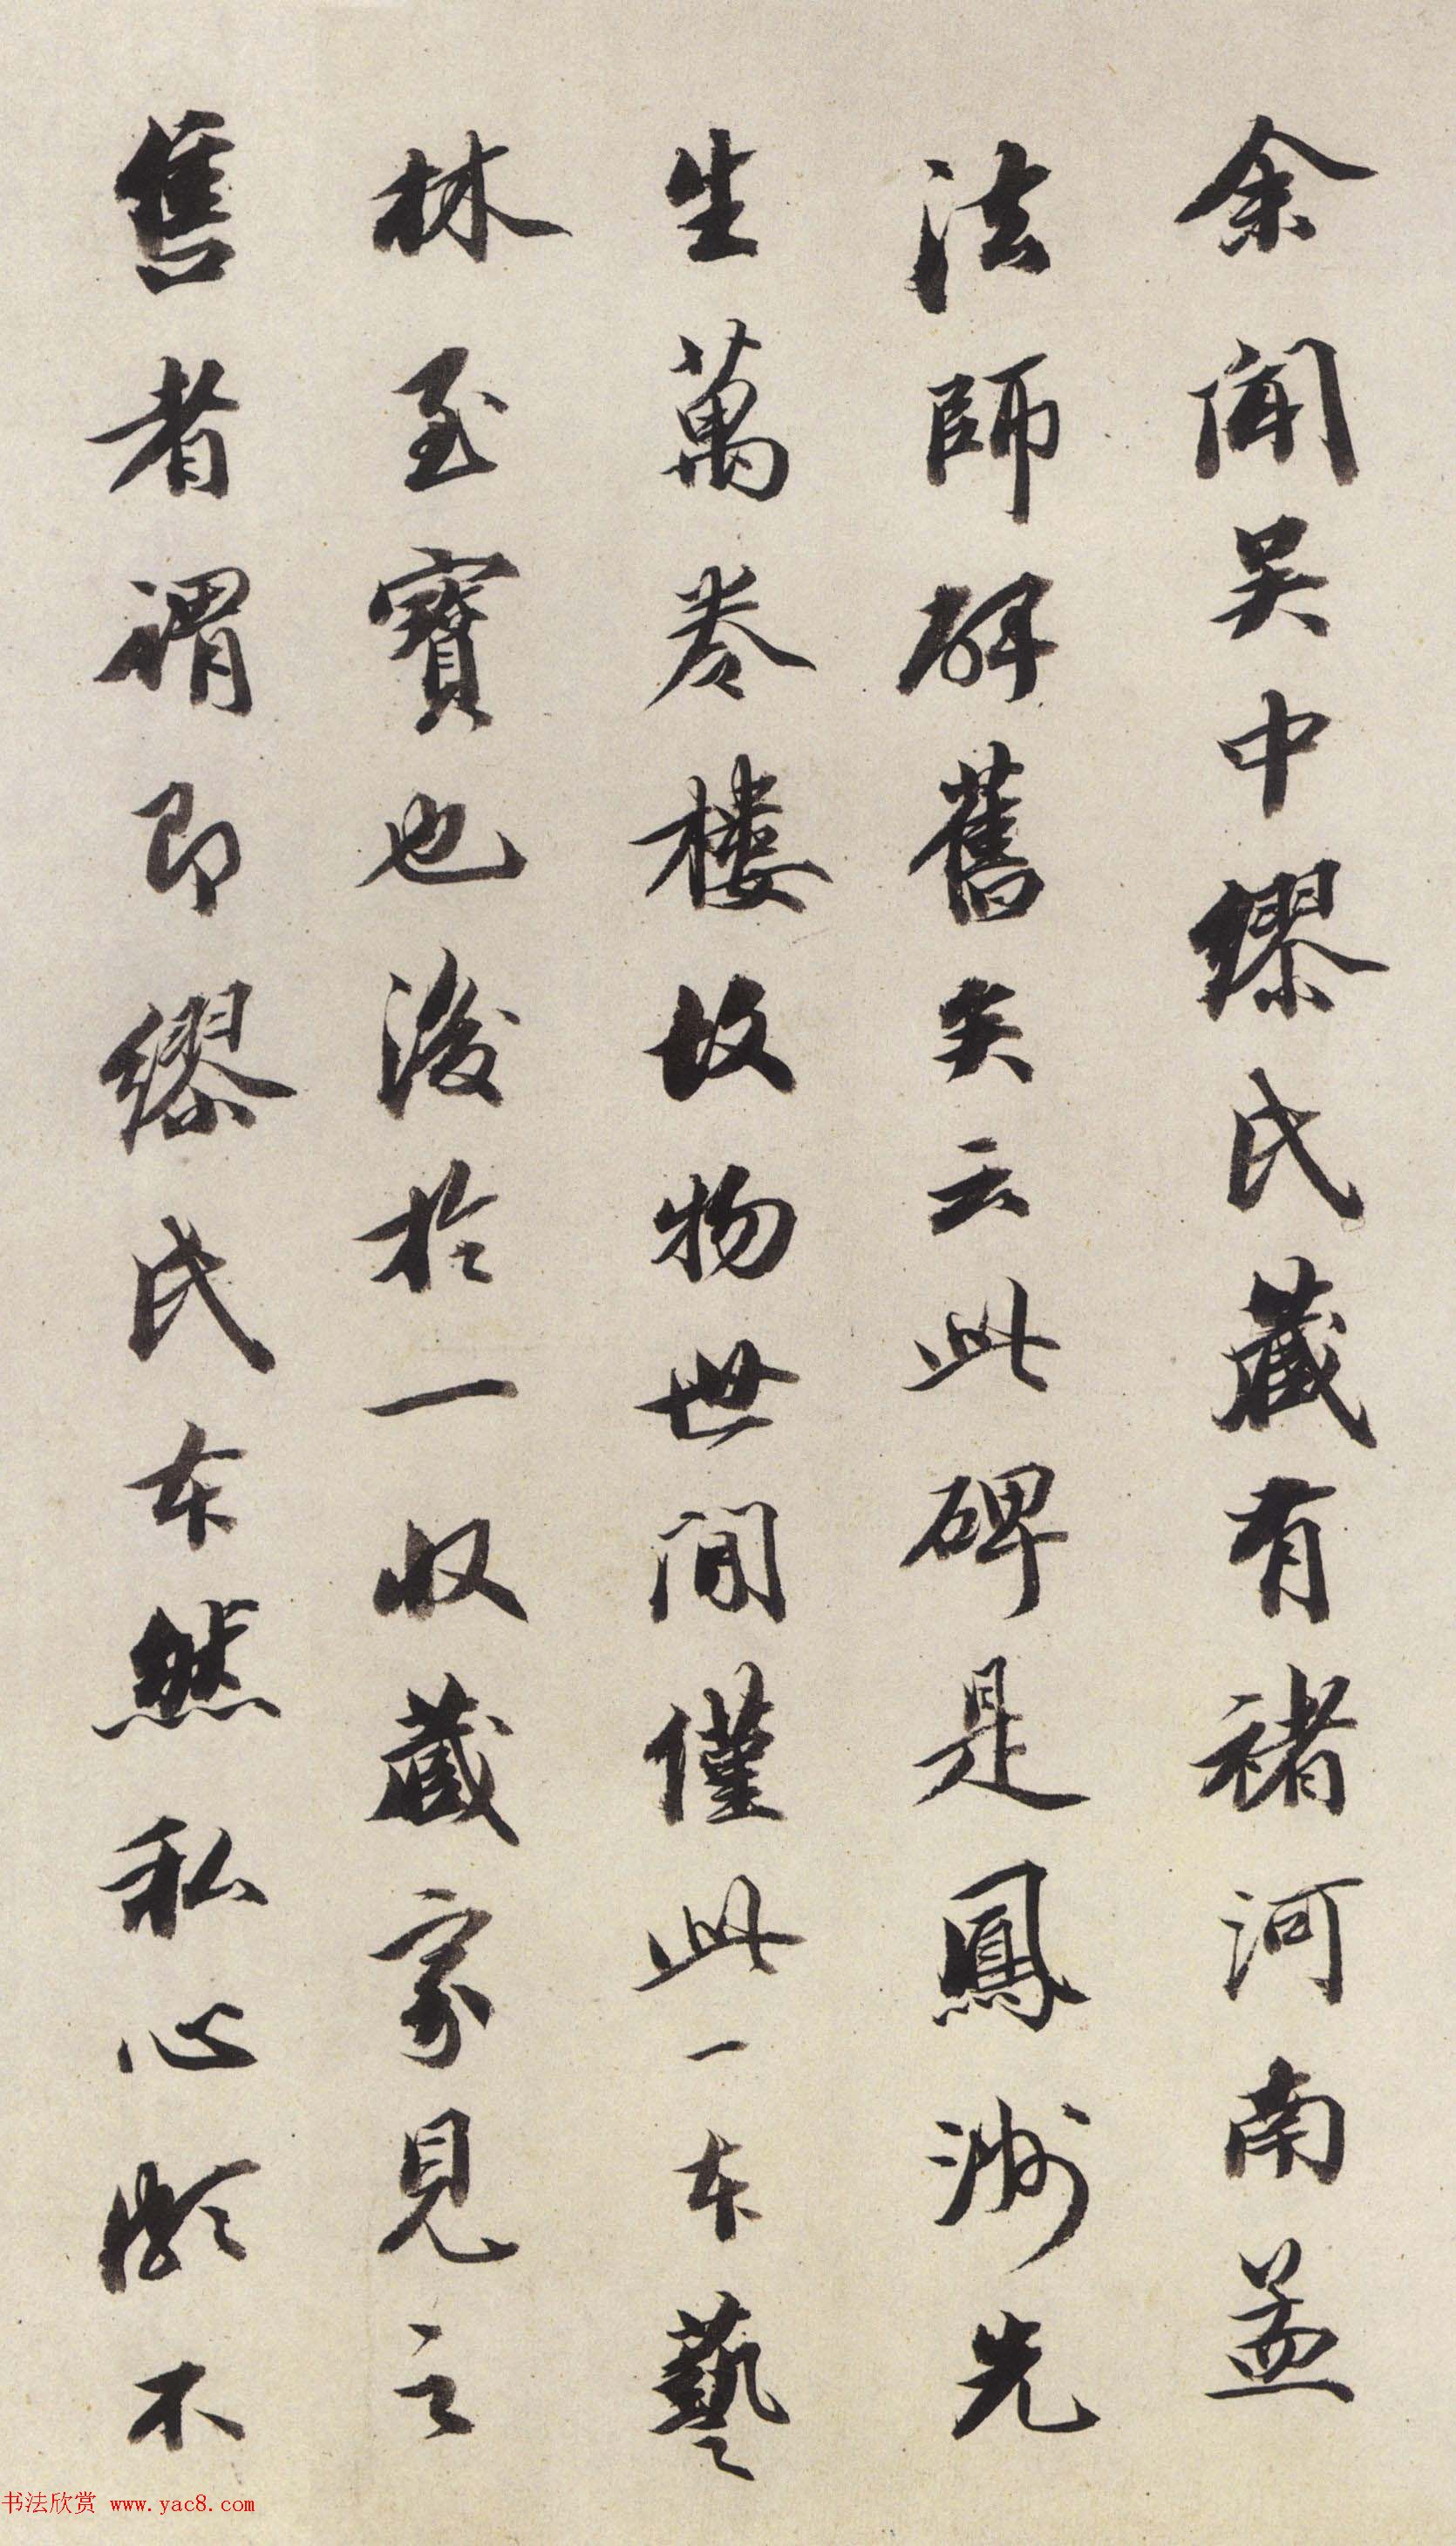 余聞吳中繆氏藏有褚河南孟
法師碑舊矣云此碑是鳳洲先
生萬卷樓故物世間僅此一本藝
林至寶也後於一收藏家見之
售者謂即繆氏本然私心頗不
书法欣赏 www.yac8.com